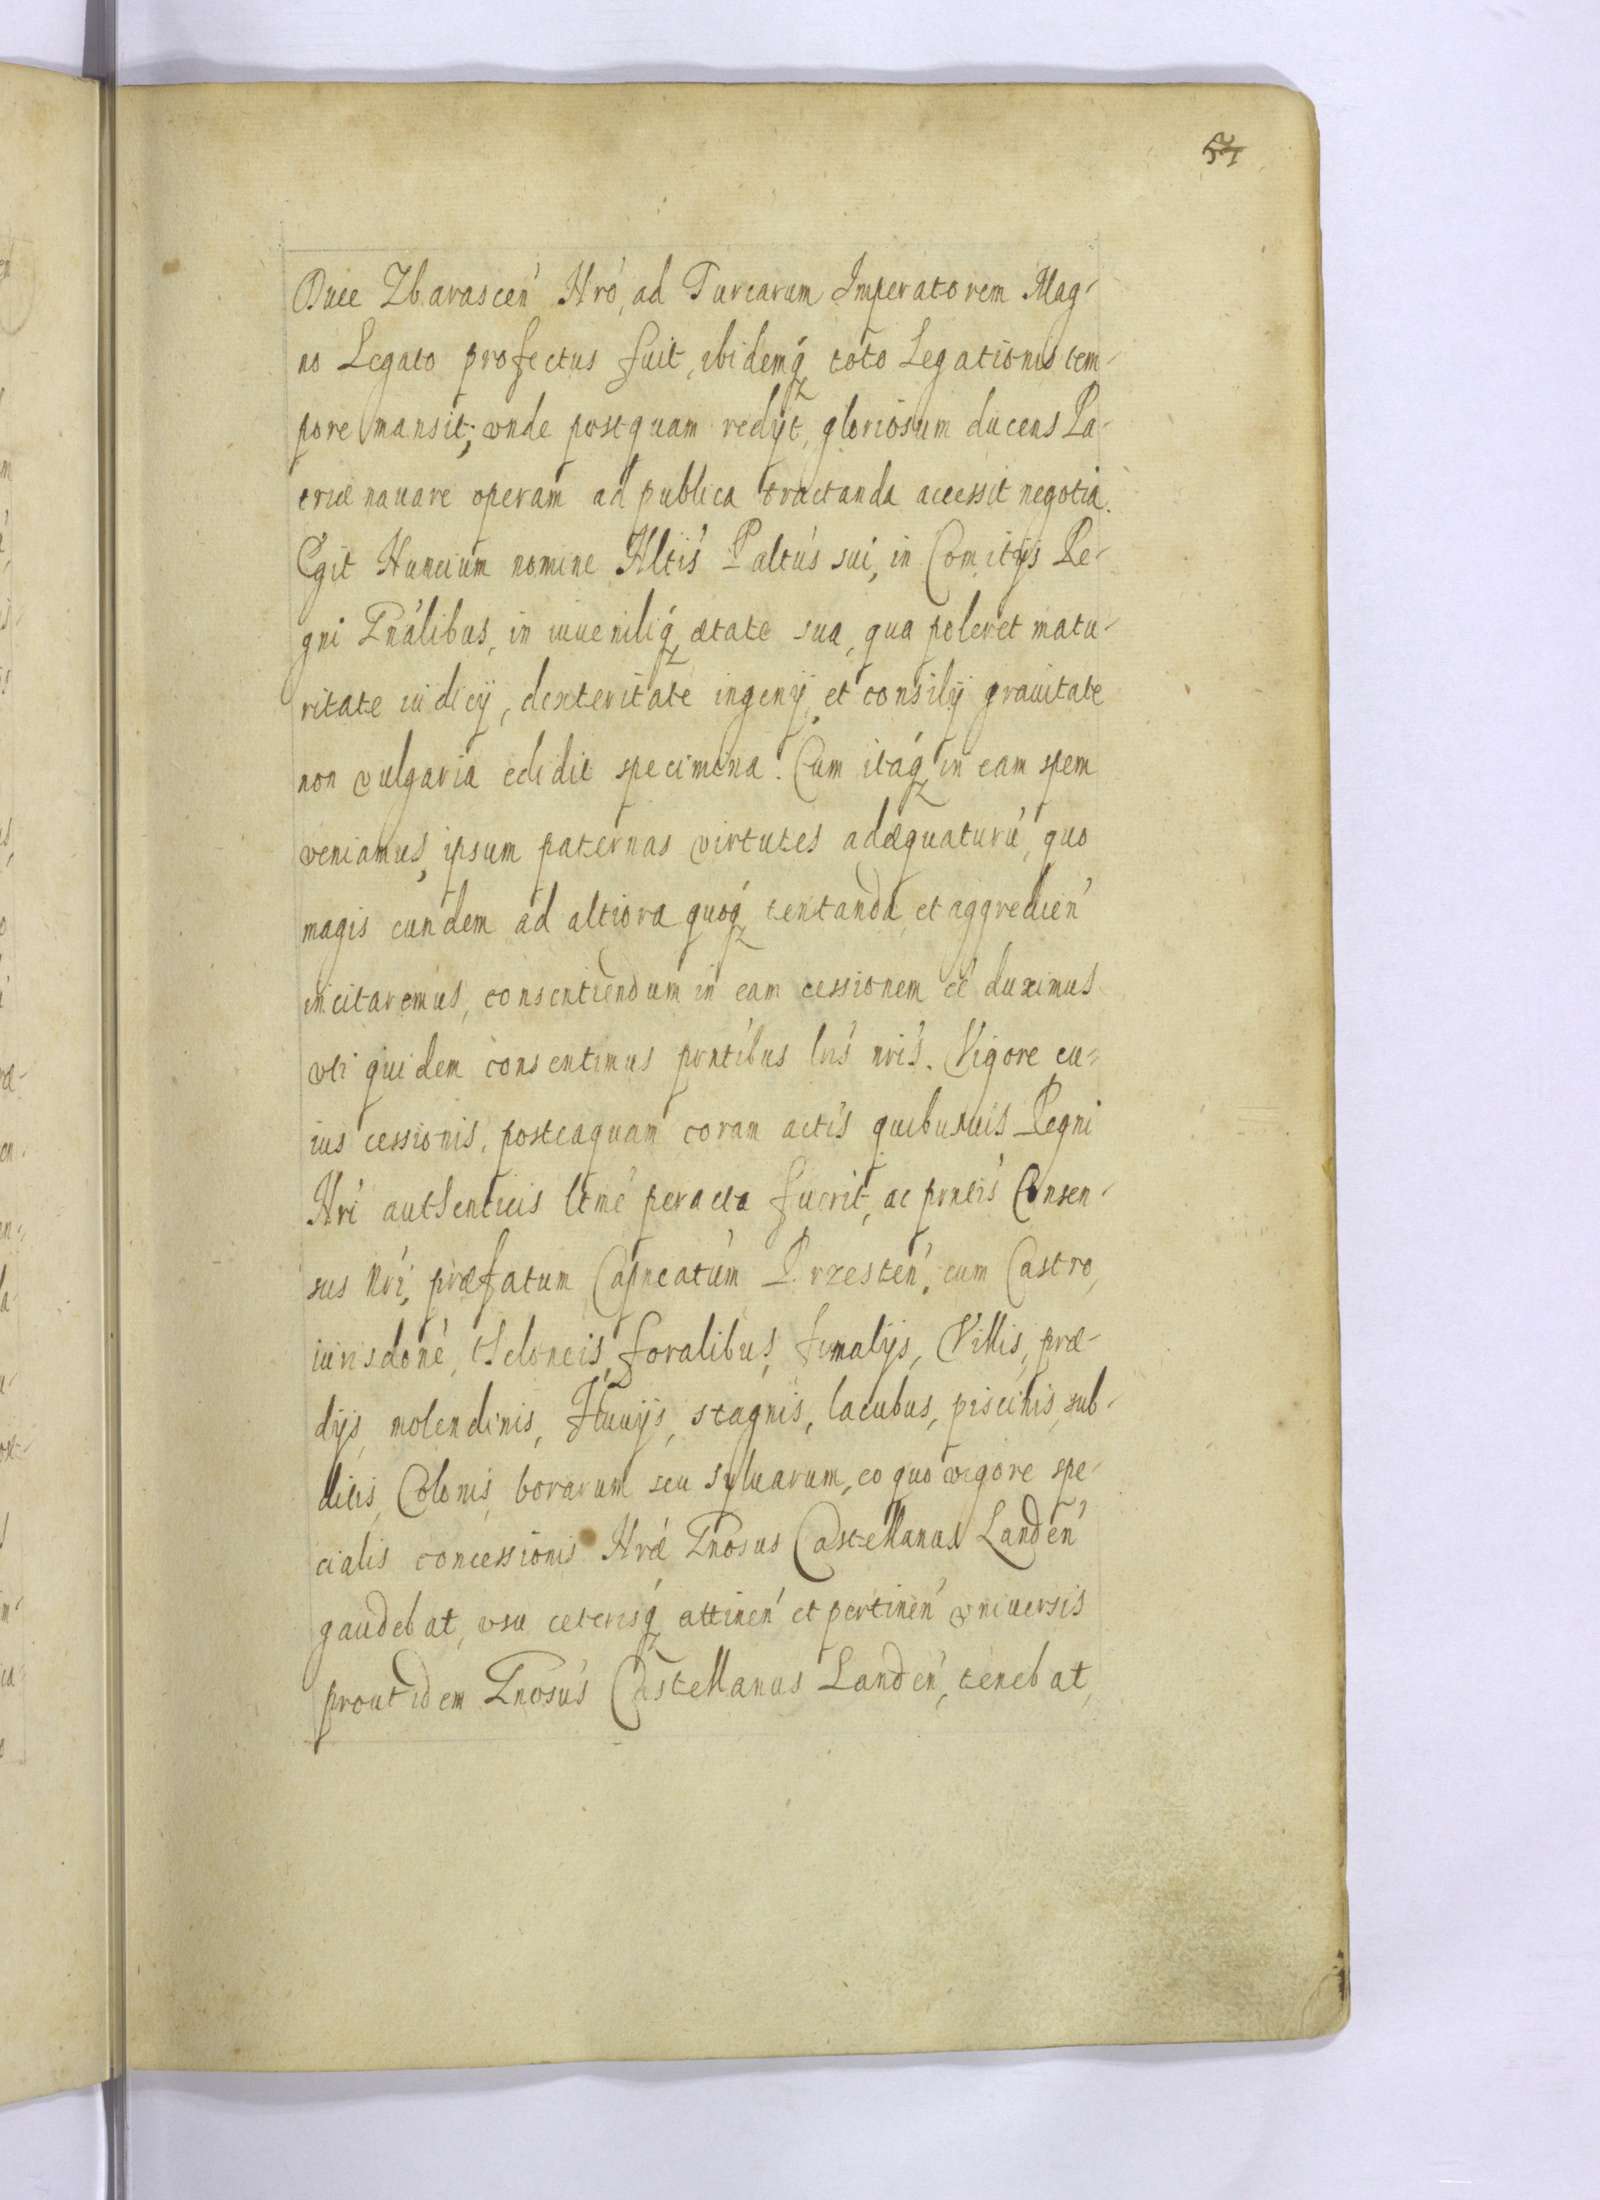 Duce Zbarascen' Nrõ, ad Turcarum Imperatorem Mag-
no Legato profectus fuit, ibidemq́ toto Legationis tem-
pore mansit; vnde postquam redijt, gloriosum ducens Pa-
triæ nauare operam ad publica tractanda accessit negotia.
Egit Nuncium nomine Nltis' Palt̓us sui, in Comitijs Re-
gni Gnãlibus, in iuueniliq́ ætate sua, qua polleret matu-
ritate iudicij, dexteritate ingenij, et consilij grauitate
non vulgaria edidit specimina. Cum itaq́ in eam spem
veniamus, ipsum paternas virtutes adæquaturũ, quo
magis eundem ad altiora quoq́ tentanda, et aggredien'
incitaremus, consentiendum in eam cessionem eẽ duximus
vti quidem consentimus pñtibus lrı̃s nrı̃s. Vigore cu-
ius cessionis, posteaquam coram actis quibusuis Regni
Nrı̃ authenticis ltmẽ peracta fuerit, ac pñtis' Consen-
sus Nrı̃, præfatum Capneatũm Brzesten', cum Castro,
iurisdonẽ, theloneis, foralibus, fumalijs, Villis, præ-
dijs, molendinis, Fluuijs, stagnis, lacubus, piscinis, sub-
ditis, Colonis, borarum seu syluarum, eo quo vigore spe-
cialis concessionis Nræ̃ Gnosus Castellanus Landen'
gaudebat, vsu ceterisq́ attinen' et pertinen' vniuersis
prout idem Gnosus Castellanus Landen', tenebat,